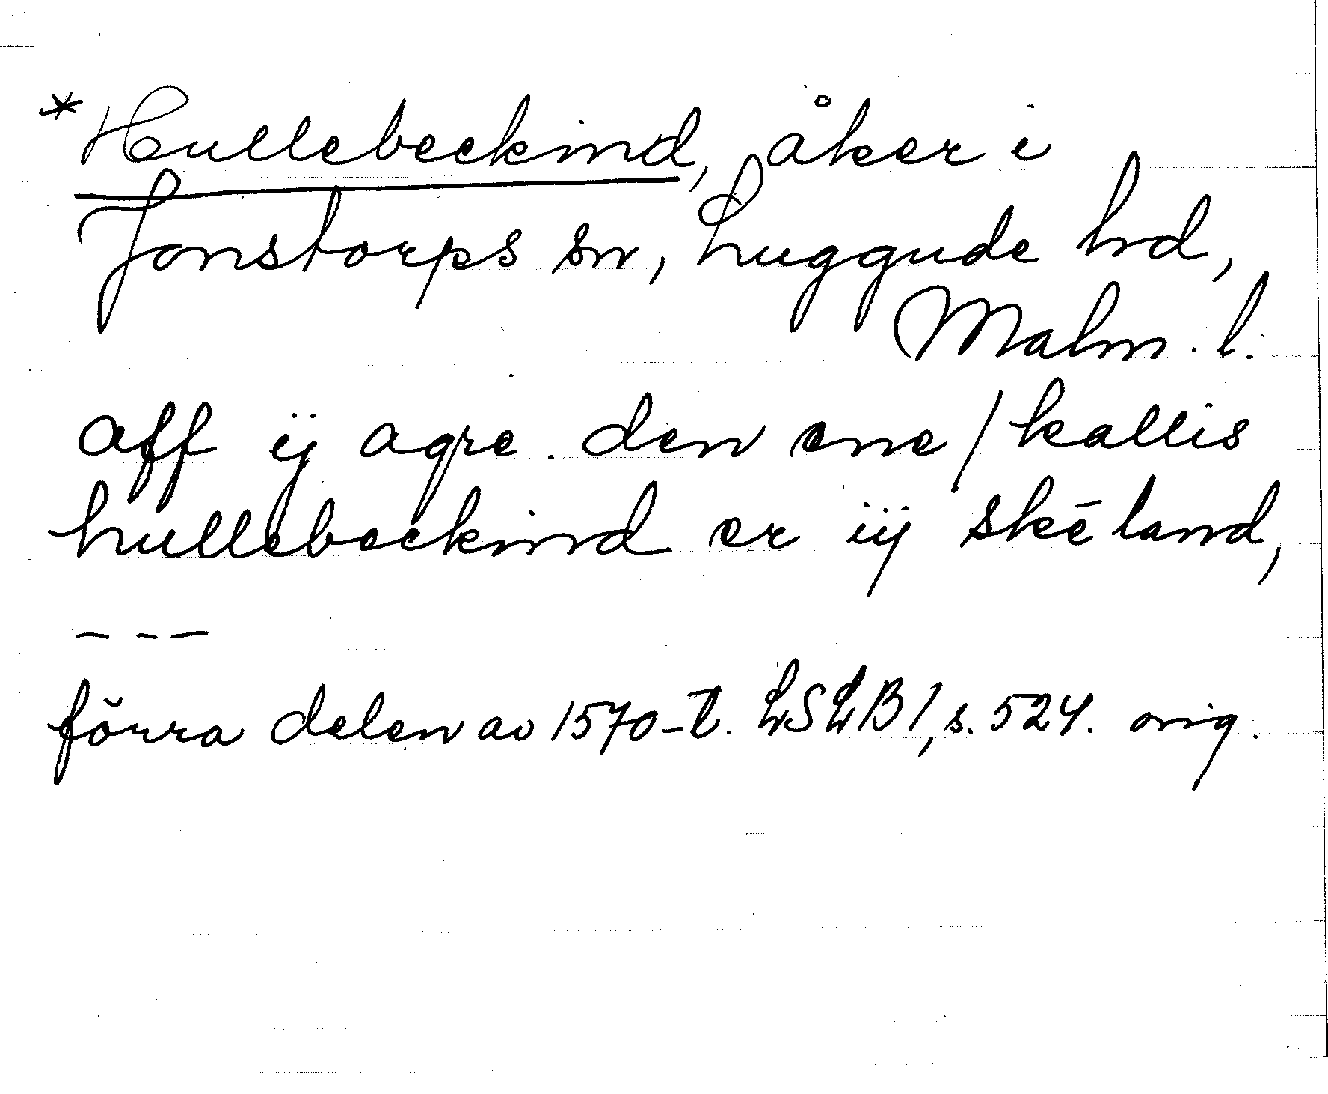 *Hullebeckind, åker i
Jonstorps sn, Luggude hd,
Malm. l.
aff ij agre den ene / kallis
hullebeckind er iij skē land,
---
förra delen av 1570-t. LSLB 1, s. 524. orig.